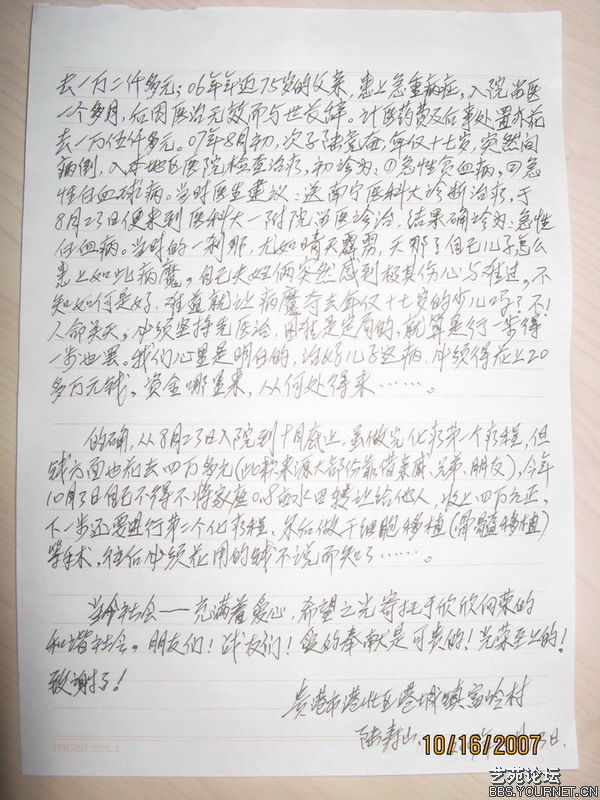 去一万二仟多元；06年年近75岁的父亲，患上急重病症，入院留医
一个多月，后因医治无效而与世长辞。计医药费及后事处置外花
去一万伍仟多元。07年8月初，次子陆党奋，年仅十七岁，突然间
病倒，入本地区医院检查治疗，初诊为：①急性贫血病，②急
性白血球病。当时医生建议：送南宁医科大诊断治疗，于
8月23日便来到医科大一附院留医诊治，结果确诊为：急性
白血病。当时的一刹那，尤如晴天霹雳，天那！自己儿子怎么
患上如此病魔，自己夫妇俩突然感到极其伤心与难过，不
知如何是好，难道就让病魔夺去年仅十七岁的少儿吗？不！
人命关天，必须坚持先医治，困难是定局的，就算是行一步得
一步也罢。我们心里是明白的，治好儿子这病，必须得花上20
多万元钱，资金哪里来，从何处得来……。
的确，从8月23日入院到十月底止，虽做完化疗第一个疗程，但
钱方面也花去四万多元（此款来源大部份靠借亲戚、兄弟、朋友），今年
10月3日自己不得不将家庭0.8亩水田转让给他人，收上四万元正，
下一步还要进行第二个化疗程，末后做干细胞移植（骨髓移植）
等手术，往后必须花用的钱不说而知了……。
当今社会——充满着爱心，希望之光寄托于欣欣向荣的
和谐社会。朋友们！战友们！爱的奉献是可贵的！光荣至上的！
致谢了！
贵港市港北区港城镇富岭村
陆寿山
10/16/2007
艺苑论坛
BBS.YOURNET.CN